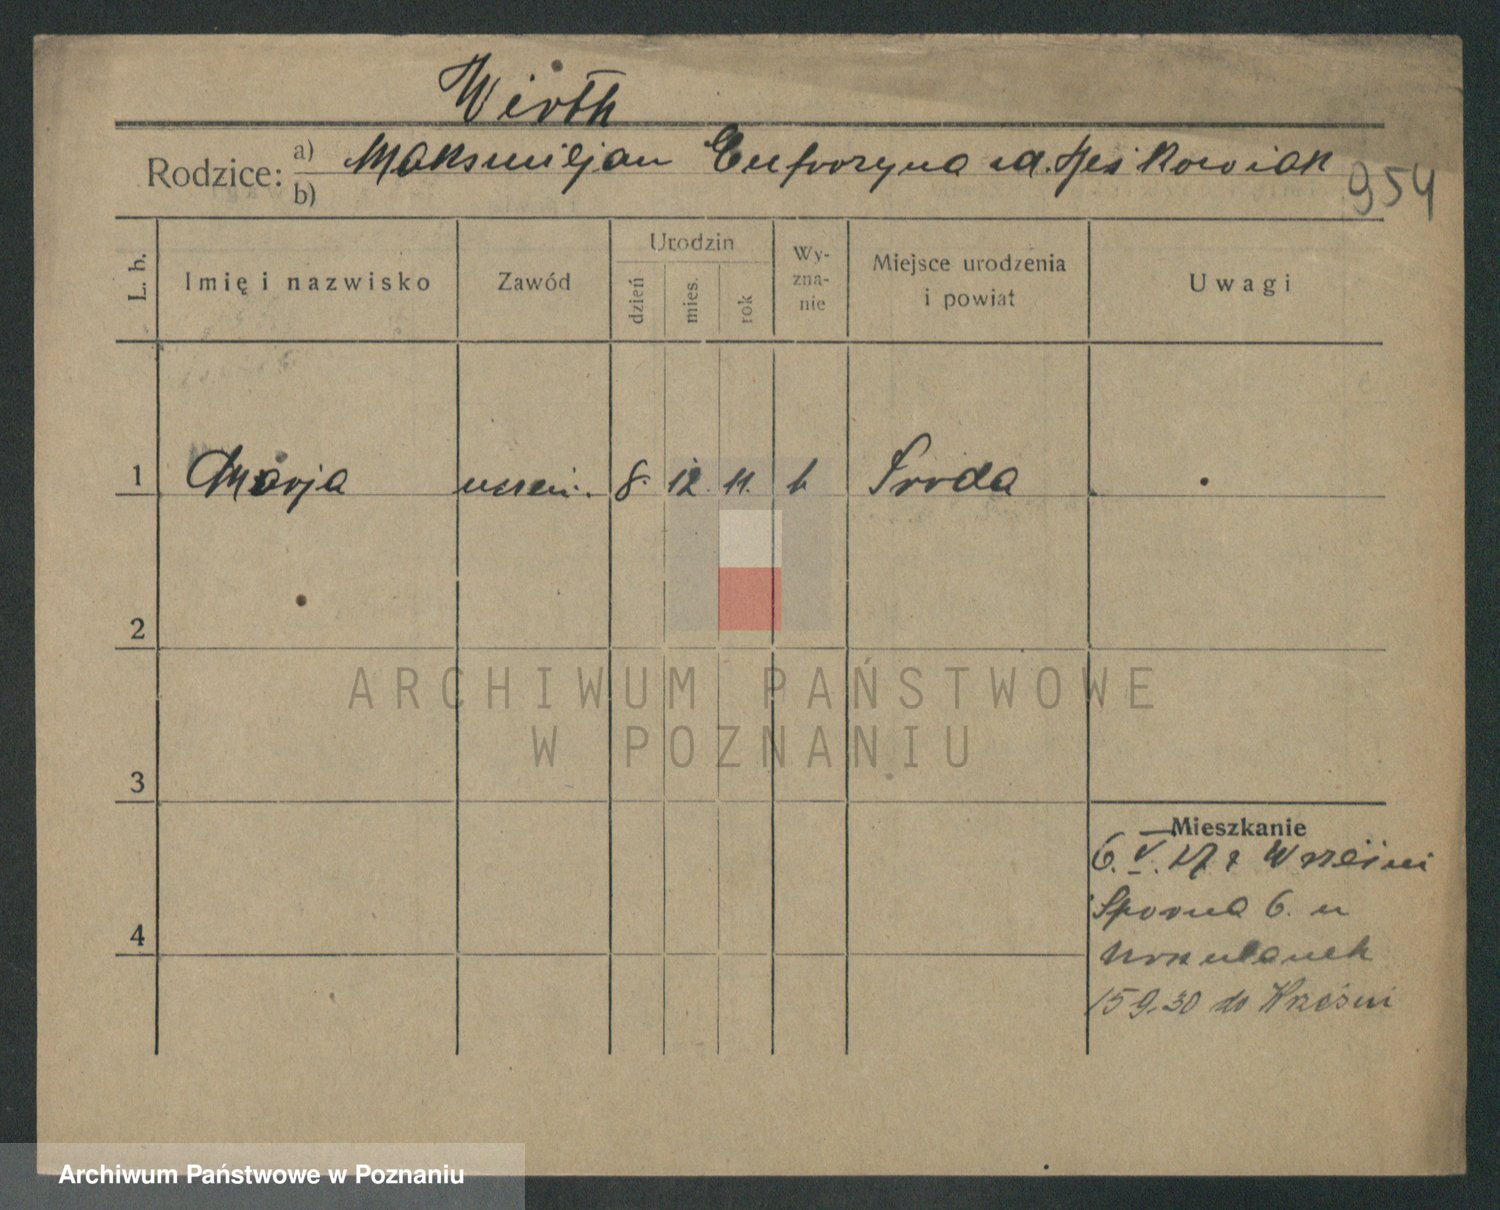 Wirth
Rodzice: a) Maksmiljan Eufrozyna
b)
954
L. b. Imię i nazwisko Zawód Urodzin dzień mies. rok Wyznanie Miejsce urodzenia i powiat Uwagi
1 Marja uczen. 8. 12. 11. k Środa
2
3
4
Mieszkanie
6. V. 27 z Wrześni
Sporna 6. u
Urszulanek
15 9.30 do Wrześni
ARCHIWUM PAŃSTWOWE
W POZNANIU
Archiwum Państwowe w Poznaniu